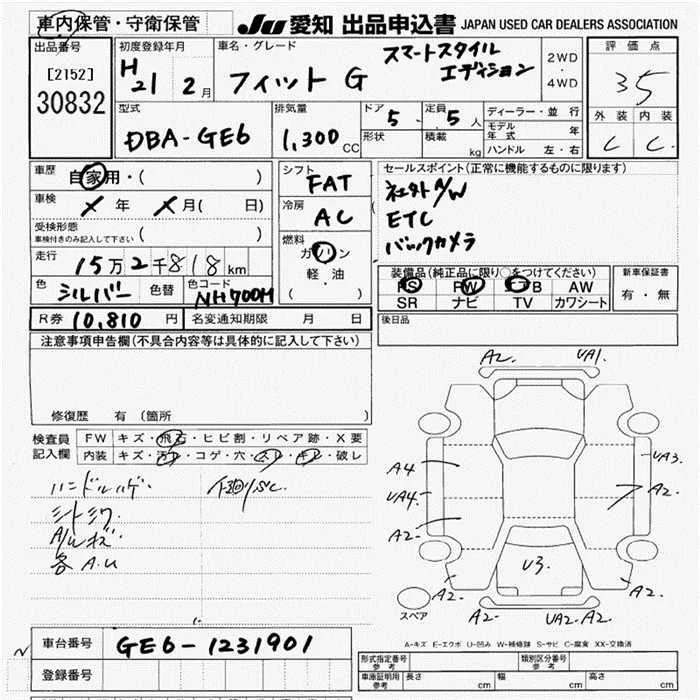 車内保管・守衛保管
JU 愛知 出品申込書 JAPAN USED CAR DEALERS ASSOCIATION
出品番号
[2152]
30832
初度登録年月
H21 2月
車名・グレード
フィット G
スマートスタイル
エディション
2WD
・
4WD
評価点
3.5
外装 内装
C C
型式
DBA-GE6
排気量
1,300 CC
ドア 5
形状
定員 5人
積載 kg
ディーラー・並行
モデル年式 年
ハンドル 左・右
車歴 自家用・( )
車検 年 月( 日)
受検形態
車検付きのみ記入して下さい ( )
走行 15万2千818km
色 シルバー 色替
色コード
NH700M
シフト
FAT
冷房
AC
燃料
ガソリン
軽・油
( )
セールスポイント(正常に機能するものに限ります)
社外A/W
ETC
バックカメラ
装備品(純正品に限り○をつけてください)
PS PW AW
SR ナビ TV カワシート
新車保証書
有・無
R券 10,810 円 名変通知期限 月 日
後日品
注意事項申告欄(不具合内容等は具体的に記入して下さい)
修復歴 有 (箇所 )
検査員
記入欄
FW キズ・飛石・ヒビ割・リペア跡・X要
内装 キズ・汚レ・コゲ・穴・スレ・キレ・破レ
ハンドルハゲ
シートシワ
A/Wキズ
各A.U
下廻りさビ
A2. UA1.
A4
UA4.
A2.
UA3.
A2.
U3.
A2. A2.
A2. UA2. A2.
スペア
A-キズ E-エクボ U-凹み W-補修跡 S-サビ C-腐食 XX-交換済
車台番号 GE6-1231901
登録番号
形式指定番号
参考
類別区分番号
参考
車庫証明用
参考
長さ cm 幅 cm 高さ cm